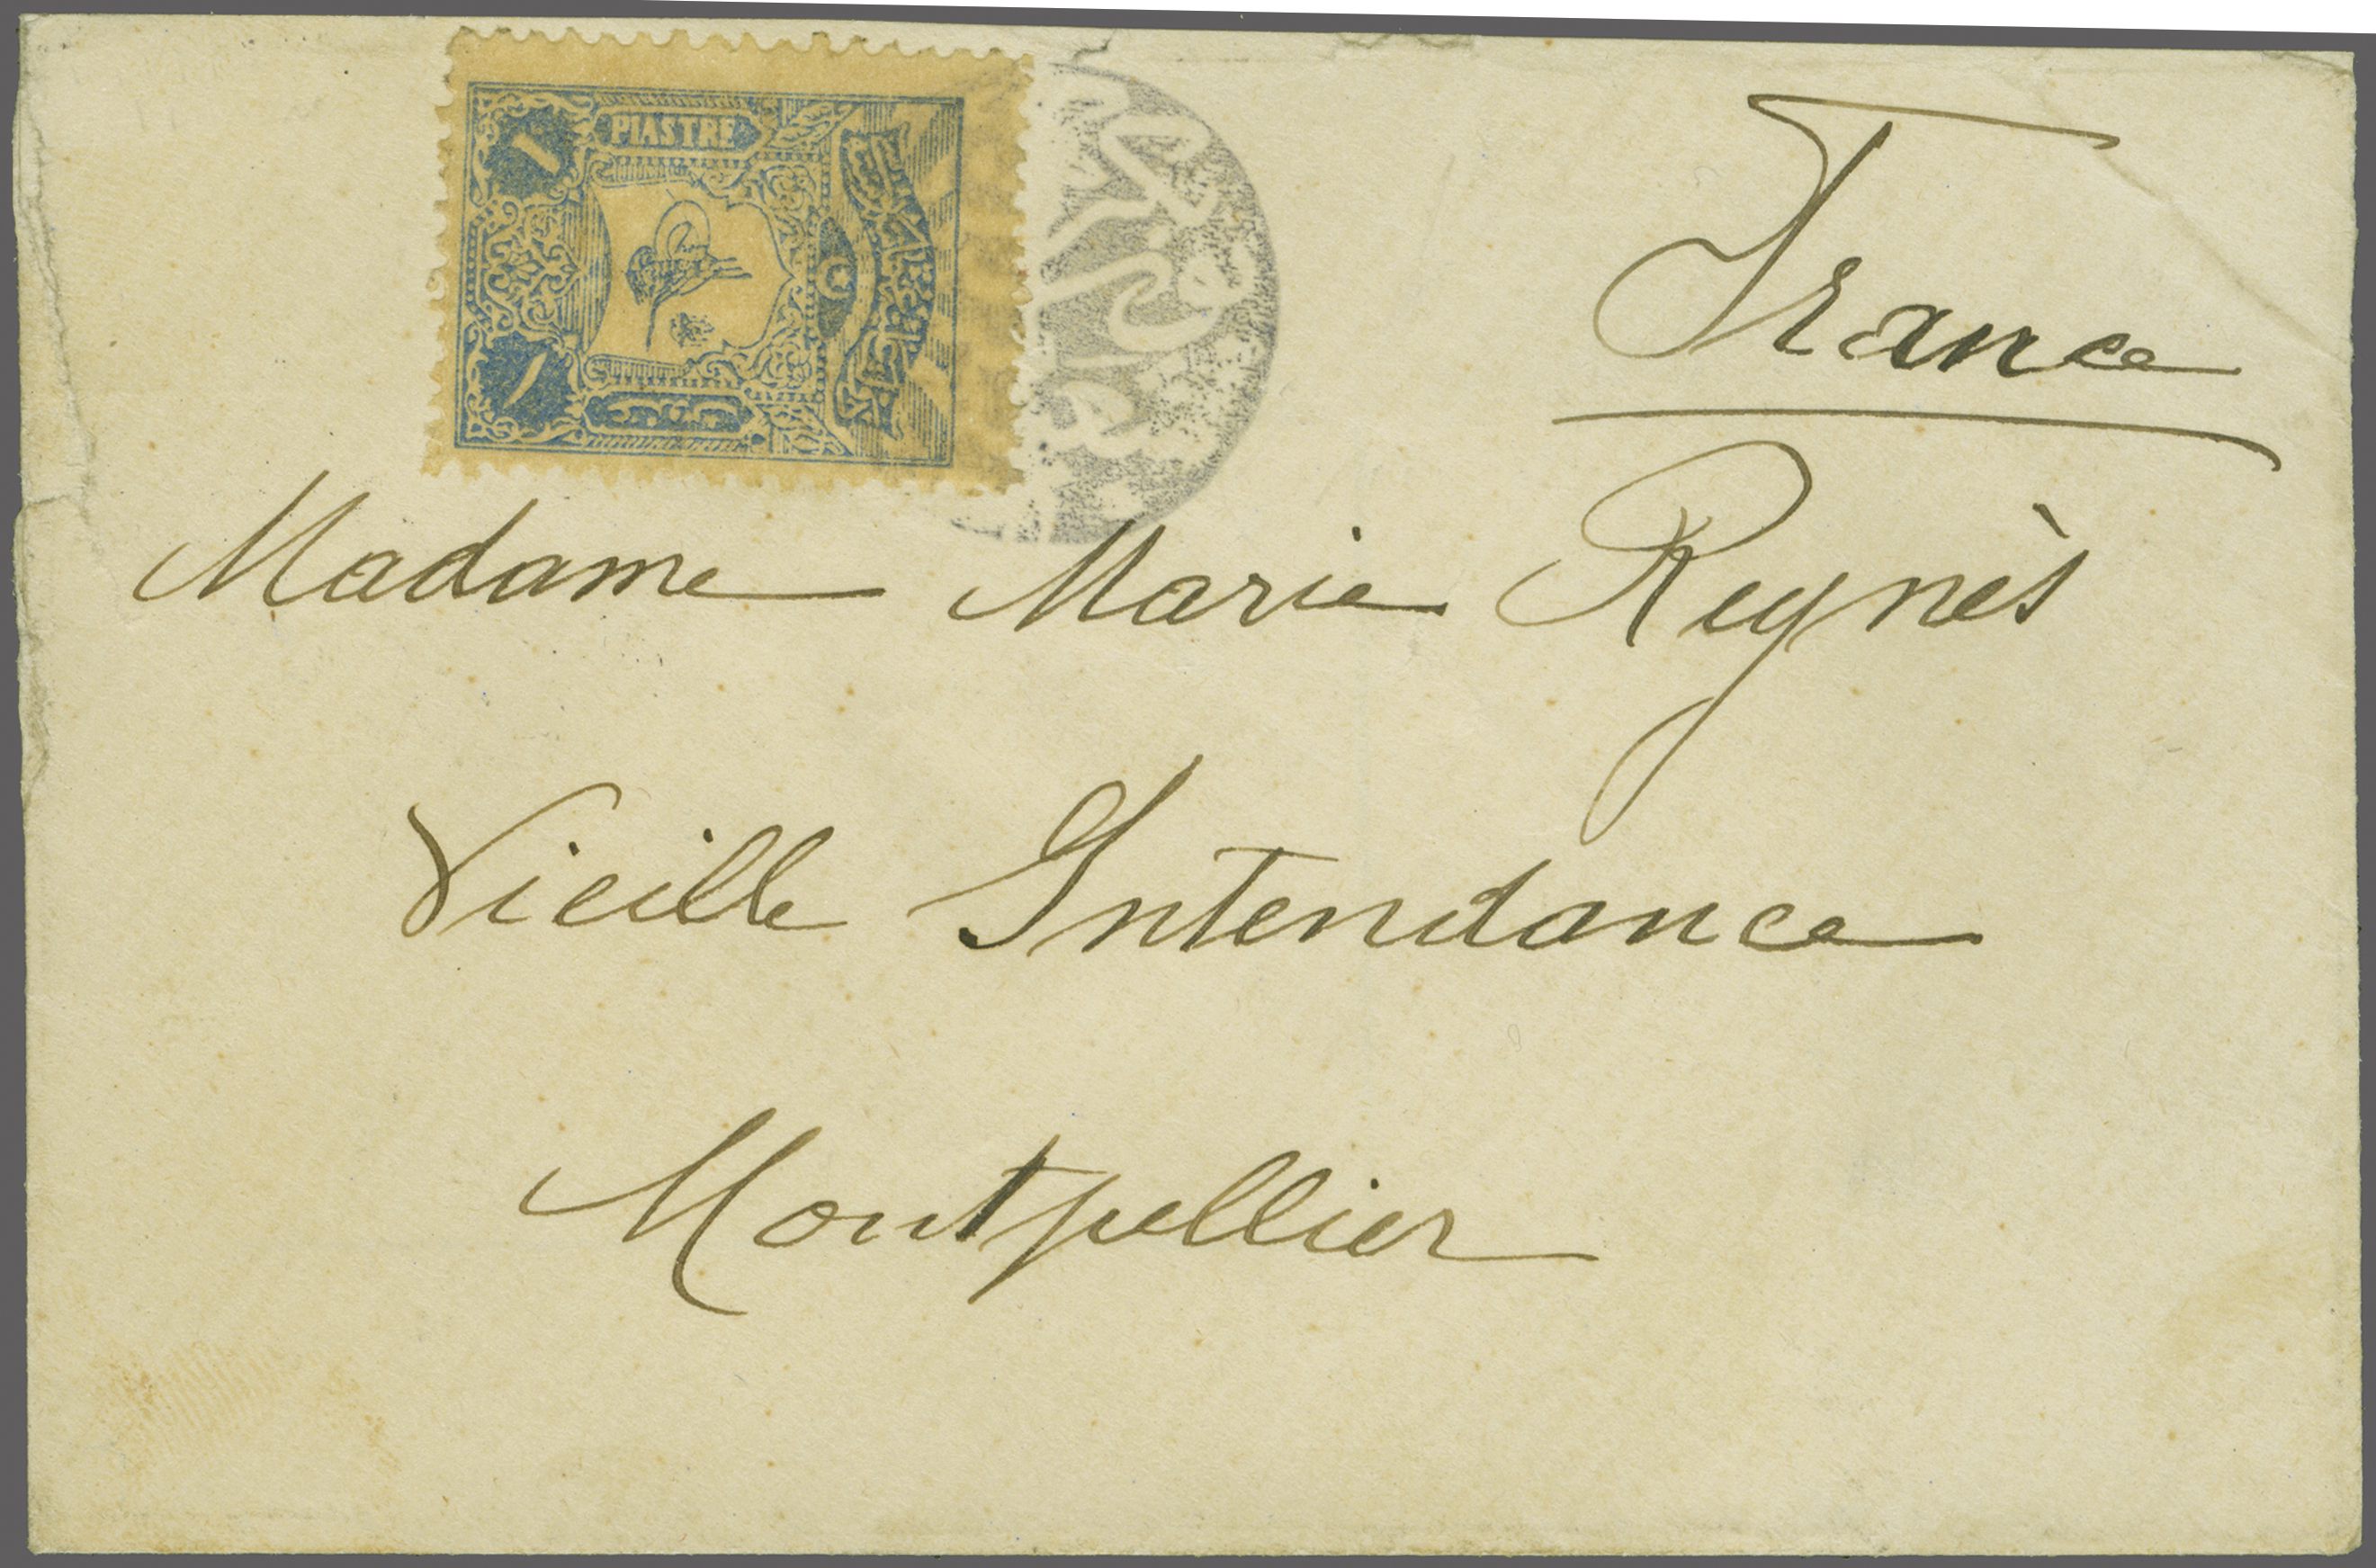 PIASTRE
١
١
France
Madame Marie Reynès
Vieille Intendance
Montpellier